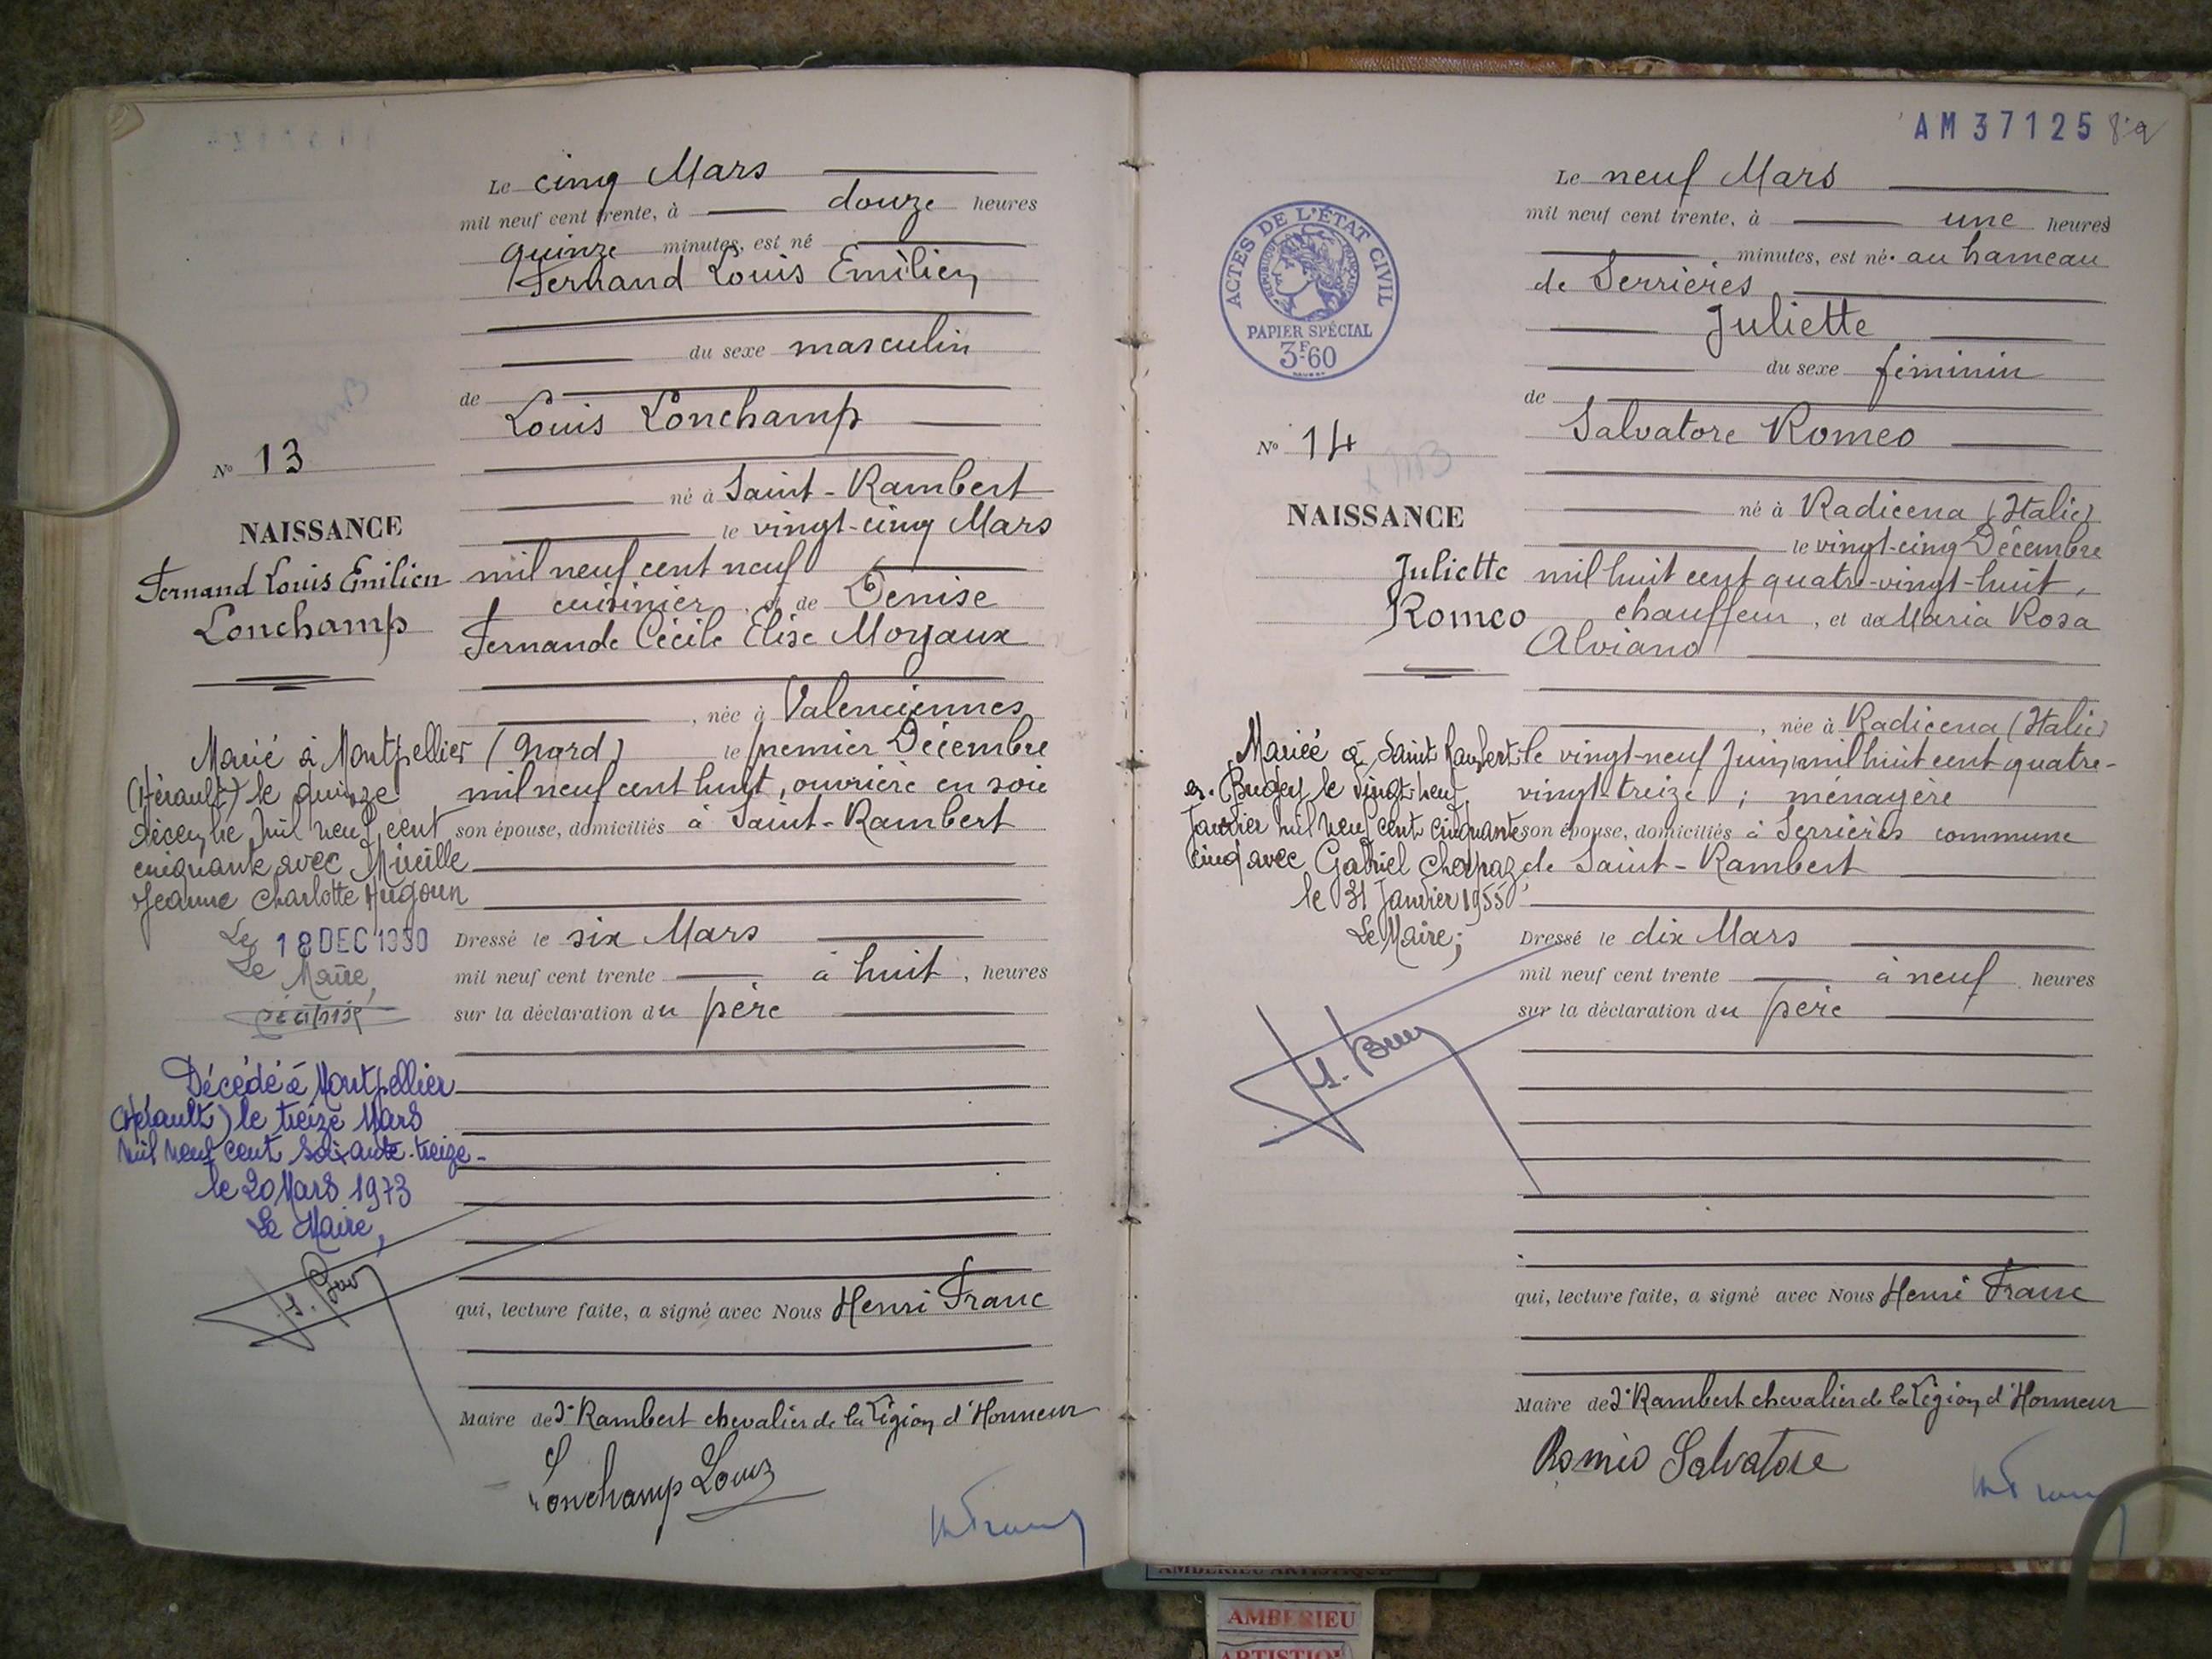 Le cinq Mars
mil neuf cent trente, à douze heures
quinze minutes, est né
Fernand Louis Emilien
du sexe masculin
de
Louis Lonchamp
N° 13
né à Saint-Rambert
NAISSANCE
le vingt-cinq Mars
Fernand Louis Emilien
Lonchamp
mil neuf cent neuf
cuisinier, et de Denise
Fernande Cécile Elise Moyaux
, née à Valenciennes
(Nord) le premier Décembre
mil neuf cent huit, ouvrière en soie
son épouse, domiciliés à Saint-Rambert
Marié à Montpellier
(Hérault) le quinze
décembre mil neuf cent
cinquante avec Mireille
Jeanne Charlotte Hugoun
Le 18 DEC 1950
Le Maire,
Dressé le six Mars
mil neuf cent trente à huit, heures
sur la déclaration du père
Décédé à Montpellier
(Hérault) le treize Mars
mil neuf cent soixante-treize-
le 20 Mars 1973
Le Maire,
qui, lecture faite, a signé avec Nous Henri Franc
Maire de St Rambert chevalier de la Légion d'Honneur
Lonchamp Louis
AM 37125
Le neuf Mars
mil neuf cent trente, à une heures
minutes, est né. au hameau
de Serrières
Juliette
du sexe féminin
de
Salvatore Romeo
ACTES DE L'ÉTAT CIVIL
RÉPUBLIQUE FRANÇAISE
PAPIER SPÉCIAL
3F60
N° 14
NAISSANCE
Juliette
Romeo
né à Radicena (Italie)
le vingt-cinq Décembre
mil huit cent quatre-vingt-huit,
chauffeur, et de Maria Rosa
Alviano
, née à Radicena (Italie)
le vingt-neuf Juin mil huit cent quatre-
vingt-treize ; ménagère
son épouse, domiciliés à Serrières commune
de Saint-Rambert
Mariée à Saint Rambert
en Bugey le vingt-neuf
Janvier mil neuf cent cinquante
cinq avec Gabriel
le 31 Janvier 1955
Le Maire;
Dressé le dix Mars
mil neuf cent trente à neuf heures
sur la déclaration du père
qui, lecture faite, a signé avec Nous Henri Franc
Maire de St Rambert chevalier de la Légion d'Honneur
Romeo Salvatore
AMBERIEU ARTISTIQUE
AMBERIEU